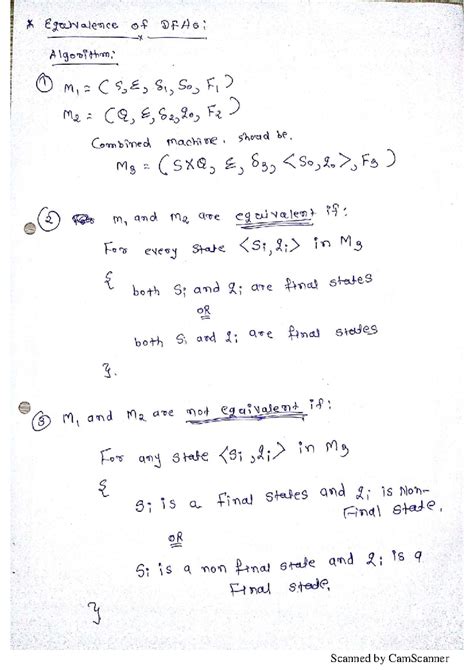 * Equivalence of DFAs:
Algorithm:
① M₁ = (S, Σ, δ₁, S₀, F₁)
M₂ = (Q, Σ, δ₂, q₀, F₂)
Combined machine. should be.
M₃ = (SXQ, Σ, δ₃, <S₀, q₀>, F₃)
② M₁ and M₂ are equivalent if:
For every state <Si, qi> in M₃
{
both Si and qi are final states
OR
both Si and qi are final states
}.
③ M₁ and M₂ are not equivalent if:
For any state <Si, qi> in M₃
{
Si is a final states and qi is Non-
Final state.
OR
Si is a non final state and qi is a
Final state.
}
Scanned by CamScanner